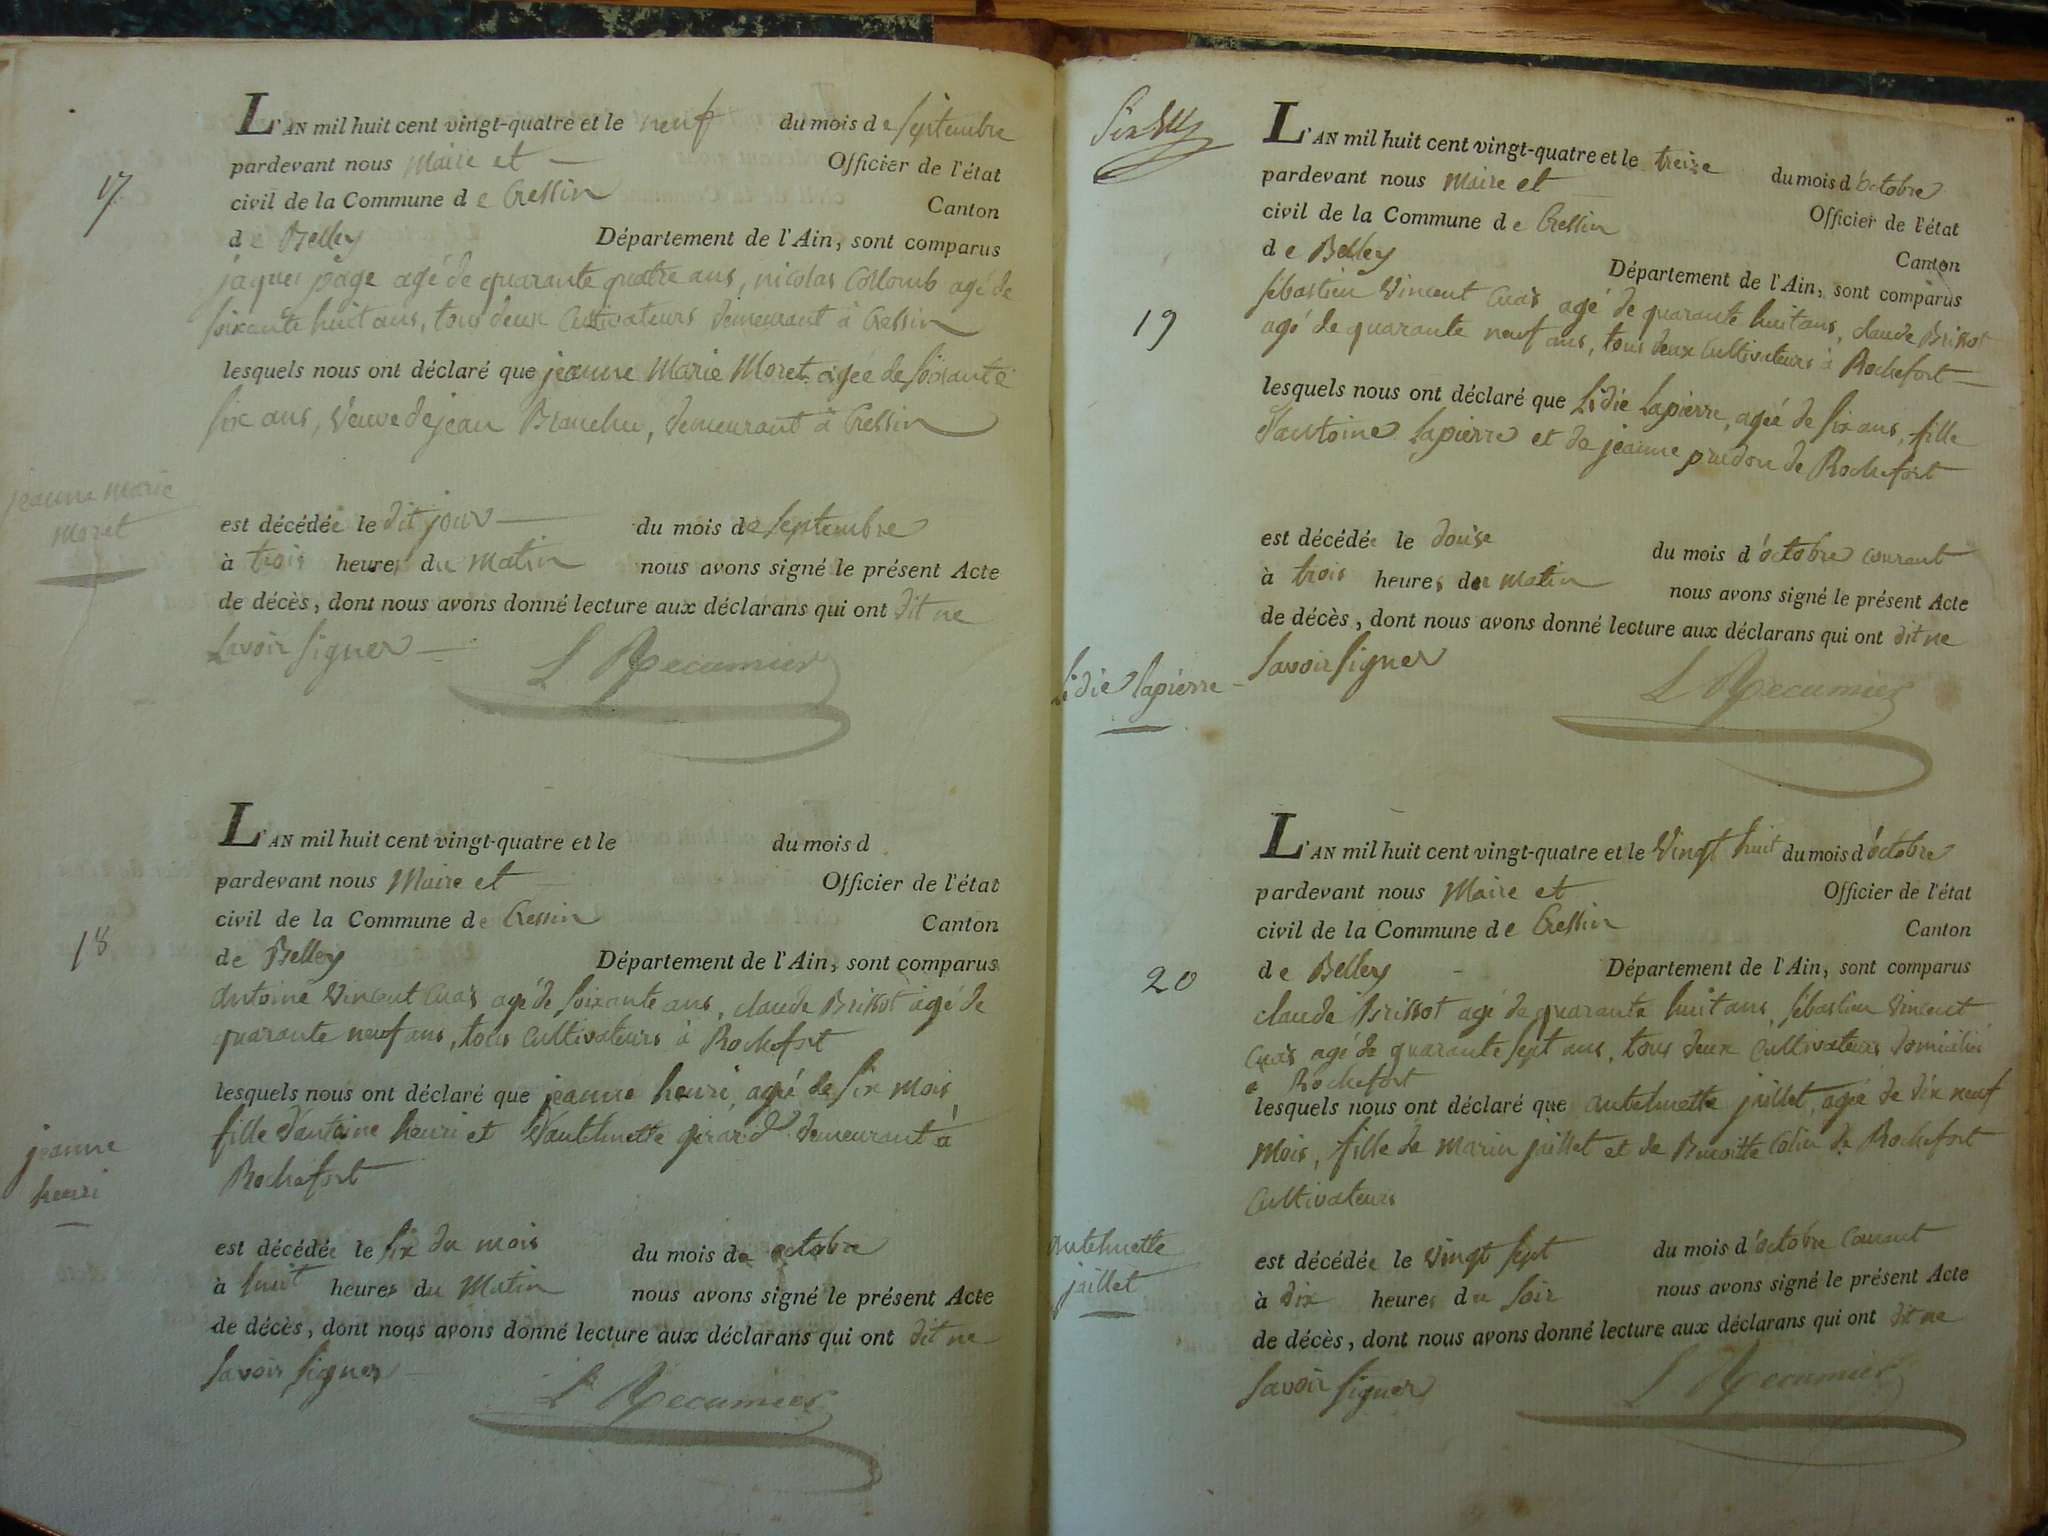 17
L'AN mil huit cent vingt-quatre et le neuf du mois de Septembre
pardevant nous Maire et Officier de l'état
civil de la Commune de Cressin Canton
de Belley Département de l'Ain, sont comparus
jaques page agé de quarante quatre ans, nicolas Collomb agé de
soixante huit ans, tous deux Cultivateurs demeurant à Cressin
lesquels nous ont déclaré que jeanne Marie Moret agée de soixante
six ans, Veuve de jean demeurant à Cressin
jeanne marie
moret
est décédée le dit jour du mois de Septembre
à trois heures du matin nous avons signé le présent Acte
de décès, dont nous avons donné lecture aux déclarans qui ont dit ne
savoir signer
L Recamier
18
L'AN mil huit cent vingt-quatre et le du mois d
pardevant nous Maire et Officier de l'état
civil de la Commune de Cressin Canton
de Belley Département de l'Ain, sont comparus
Antoine Vincent Cuas agé de soixante ans, claude Brissot agé de
quarante neuf ans, tous Cultivateurs à Rochefort
lesquels nous ont déclaré que jeanne henri, agée de six mois
fille d'antoine henri et d'antelmette girard demeurant à
Rochefort
jeanne
henri
est décédée le six du mois du mois de octobre
à huit heures du Matin nous avons signé le présent Acte
de décès, dont nous avons donné lecture aux déclarans qui ont dit ne
savoir signer
L Recamier
19
L'AN mil huit cent vingt-quatre et le treize du mois d'octobre
pardevant nous Maire et Officier de l'état
civil de la Commune de Cressin Canton
de Belley Département de l'Ain, sont comparus
sébastien Vincent Cuas agé de quarante huit ans, claude Brissot
agé de quarante neuf ans, tous deux Cultivateurs à Rochefort
lesquels nous ont déclaré que Lidie Lapierre, agée de six ans, fille
d'antoine Lapierre et de jeanne de Rochefort
est décédée le douse du mois d'octobre courant
à trois heures du matin nous avons signé le présent Acte
de décès, dont nous avons donné lecture aux déclarans qui ont dit ne
savoir signer
Lidie lapierre
L Recamier
20
L'AN mil huit cent vingt-quatre et le Vingt huit du mois d'octobre
pardevant nous Maire et Officier de l'état
civil de la Commune de Cressin Canton
de Belley Département de l'Ain, sont comparus
claude Brissot agé de quarante huit ans, sébastien Vincent
Cuas agé de quarante sept ans, tous deux Cultivateurs domicilié
a Rochefort
lesquels nous ont déclaré que antelmette juillet, agée de dix neuf
Mois, fille de marin juillet et de Benoitte Colin de Rochefort
Cultivateurs
antelmette
juillet
est décédée le Vingt sept du mois d'octobre Courant
à dix heures du soir nous avons signé le présent Acte
de décès, dont nous avons donné lecture aux déclarans qui ont dit ne
savoir signer
L Recamier